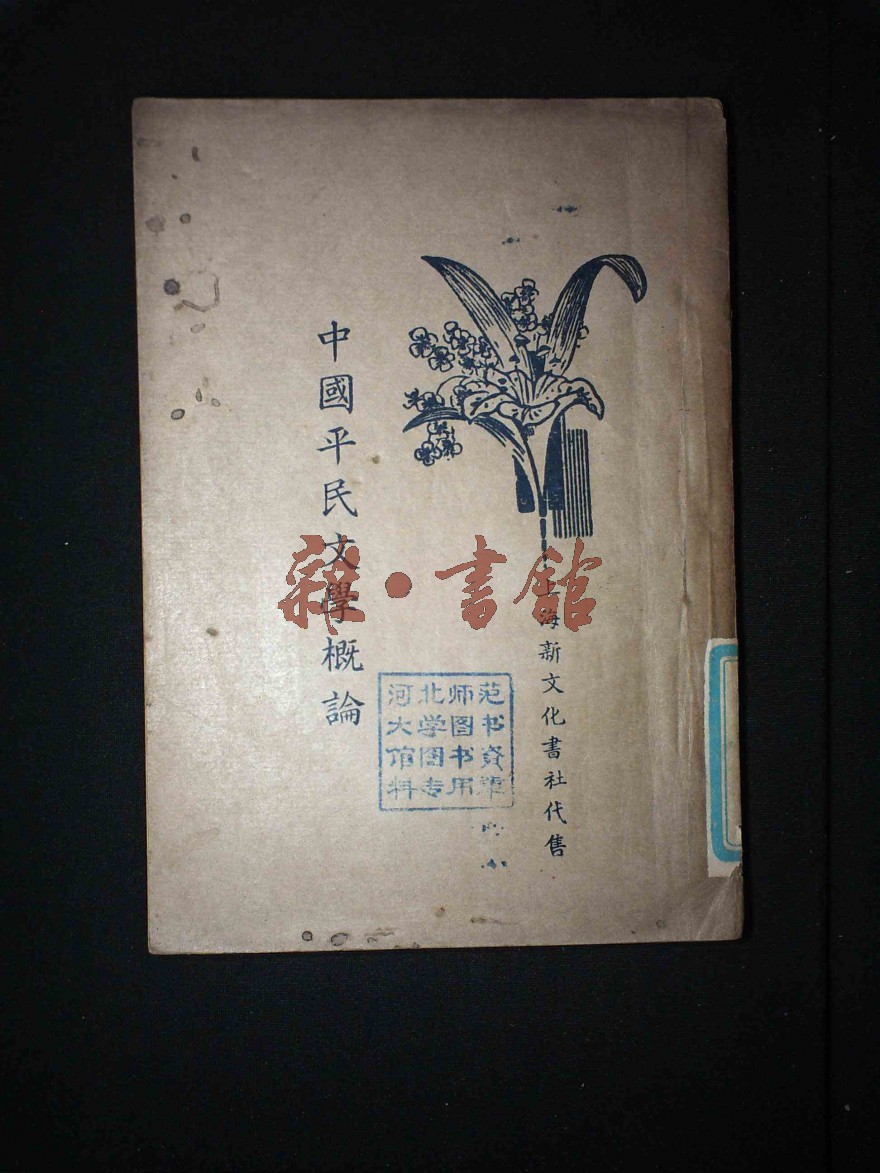 中國平民文學概論
上海新文化書社代售
雜·書館
河北师范
大学图书
馆图书资
料专用章